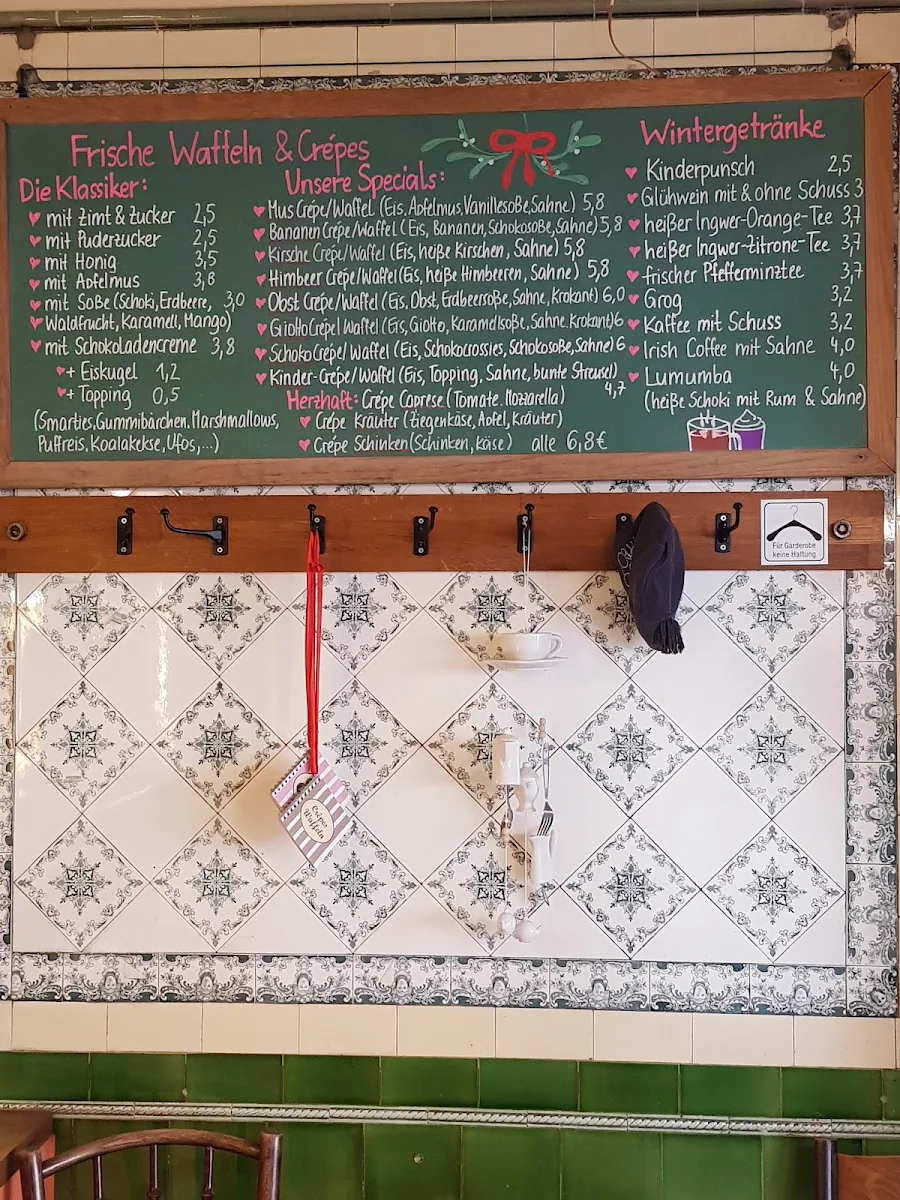 Frische Waffeln & Crépes
Die Klassiker:
mit Zimt & Zucker 2,5
mit Puderzucker 2,5
mit Honig 3,5
mit Apfelmus 3,8
mit Soße (Schoki, Erdbeere, 3,0
Waldfrucht, Karamell, Mango)
mit Schokoladencreme 3,8
+ Eiskugel 1,2
+ Topping 0,5
(Smarties, Gummibärchen, Marshmallows,
Puffreis, Koalakekse, Ufos,...)
Unsere Specials:
Mus Crépe/Waffel (Eis, Apfelmus, Vanillesoße, Sahne) 5,8
Bananen Crépe/Waffel (Eis, Bananen, Schokosoße, Sahne) 5,8
Kirsche Crépe/Waffel (Eis, heiße Kirschen, Sahne) 5,8
Himbeer Crépe/Waffel (Eis, heiße Himbeeren, Sahne) 5,8
Obst Crépe/Waffel (Eis, Obst, Erdbeersoße, Sahne, Krokant) 6,0
Giotto Crépe/Waffel (Eis, Giotto, Karamellsoße, Sahne, Krokant) 6
Schoko Crépe/Waffel (Eis, Schokocrossies, Schokosoße, Sahne) 6
Kinder-Crépe/Waffel (Eis, Topping, Sahne, bunte Streusel) 4,7
Herzhaft: Crépe Caprese (Tomate, Mozzarella)
Crépe Kräuter (Ziegenkäse, Apfel, Kräuter)
Crépe Schinken (Schinken, Käse) alle 6,8€
Wintergetränke
Kinderpunsch 2,5
Glühwein mit & ohne Schuss 3
heißer Ingwer-Orange-Tee 3,7
heißer Ingwer-Zitrone-Tee 3,7
frischer Pfefferminztee 3,7
Grog 3,2
Kaffee mit Schuss 3,2
Irish Coffee mit Sahne 4,0
Lumumba 4,0
(heiße Schoki mit Rum & Sahne)
Für Garderobe
keine Haftung
Waffeln